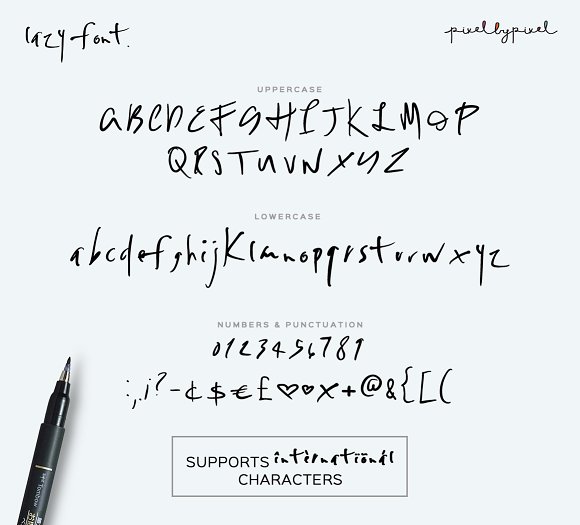 lazy font.
pixelbypixel
UPPERCASE
ABCDEFGHIJKLMOP
QRSTUVNXYZ
LOWERCASE
abcdefghijKlmnopqrstuvwxyz
NUMBERS & PUNCTUATION
0123456789
:,.i?-¢$€£♡♡×+@&{[(
SUPPORTS international
CHARACTERS